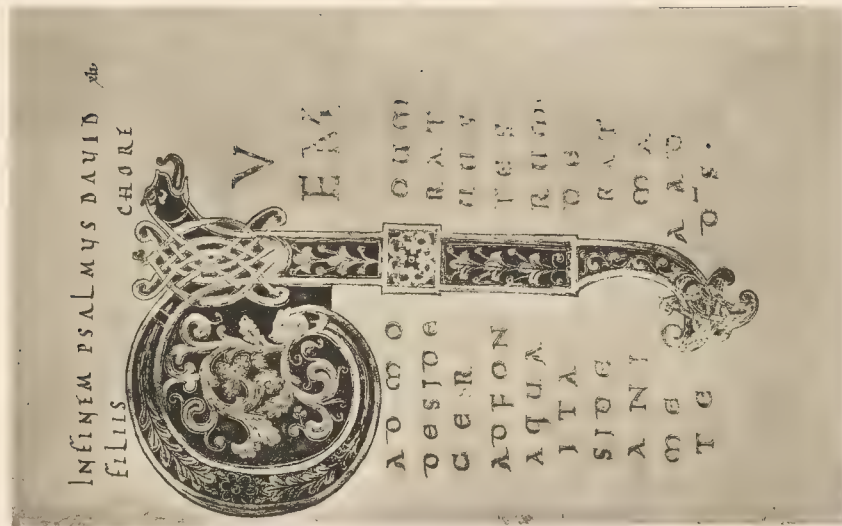 INFINEM PSALMVS DAVID xli
FILIIS CHORE
Q V
EM
ADMO DUM
DESIDE RAT
CER UUS
ADFON TES
AQUA RUM
ITA DE
SIDE RAT
ANI MA
ME AAD
TE D̅S.